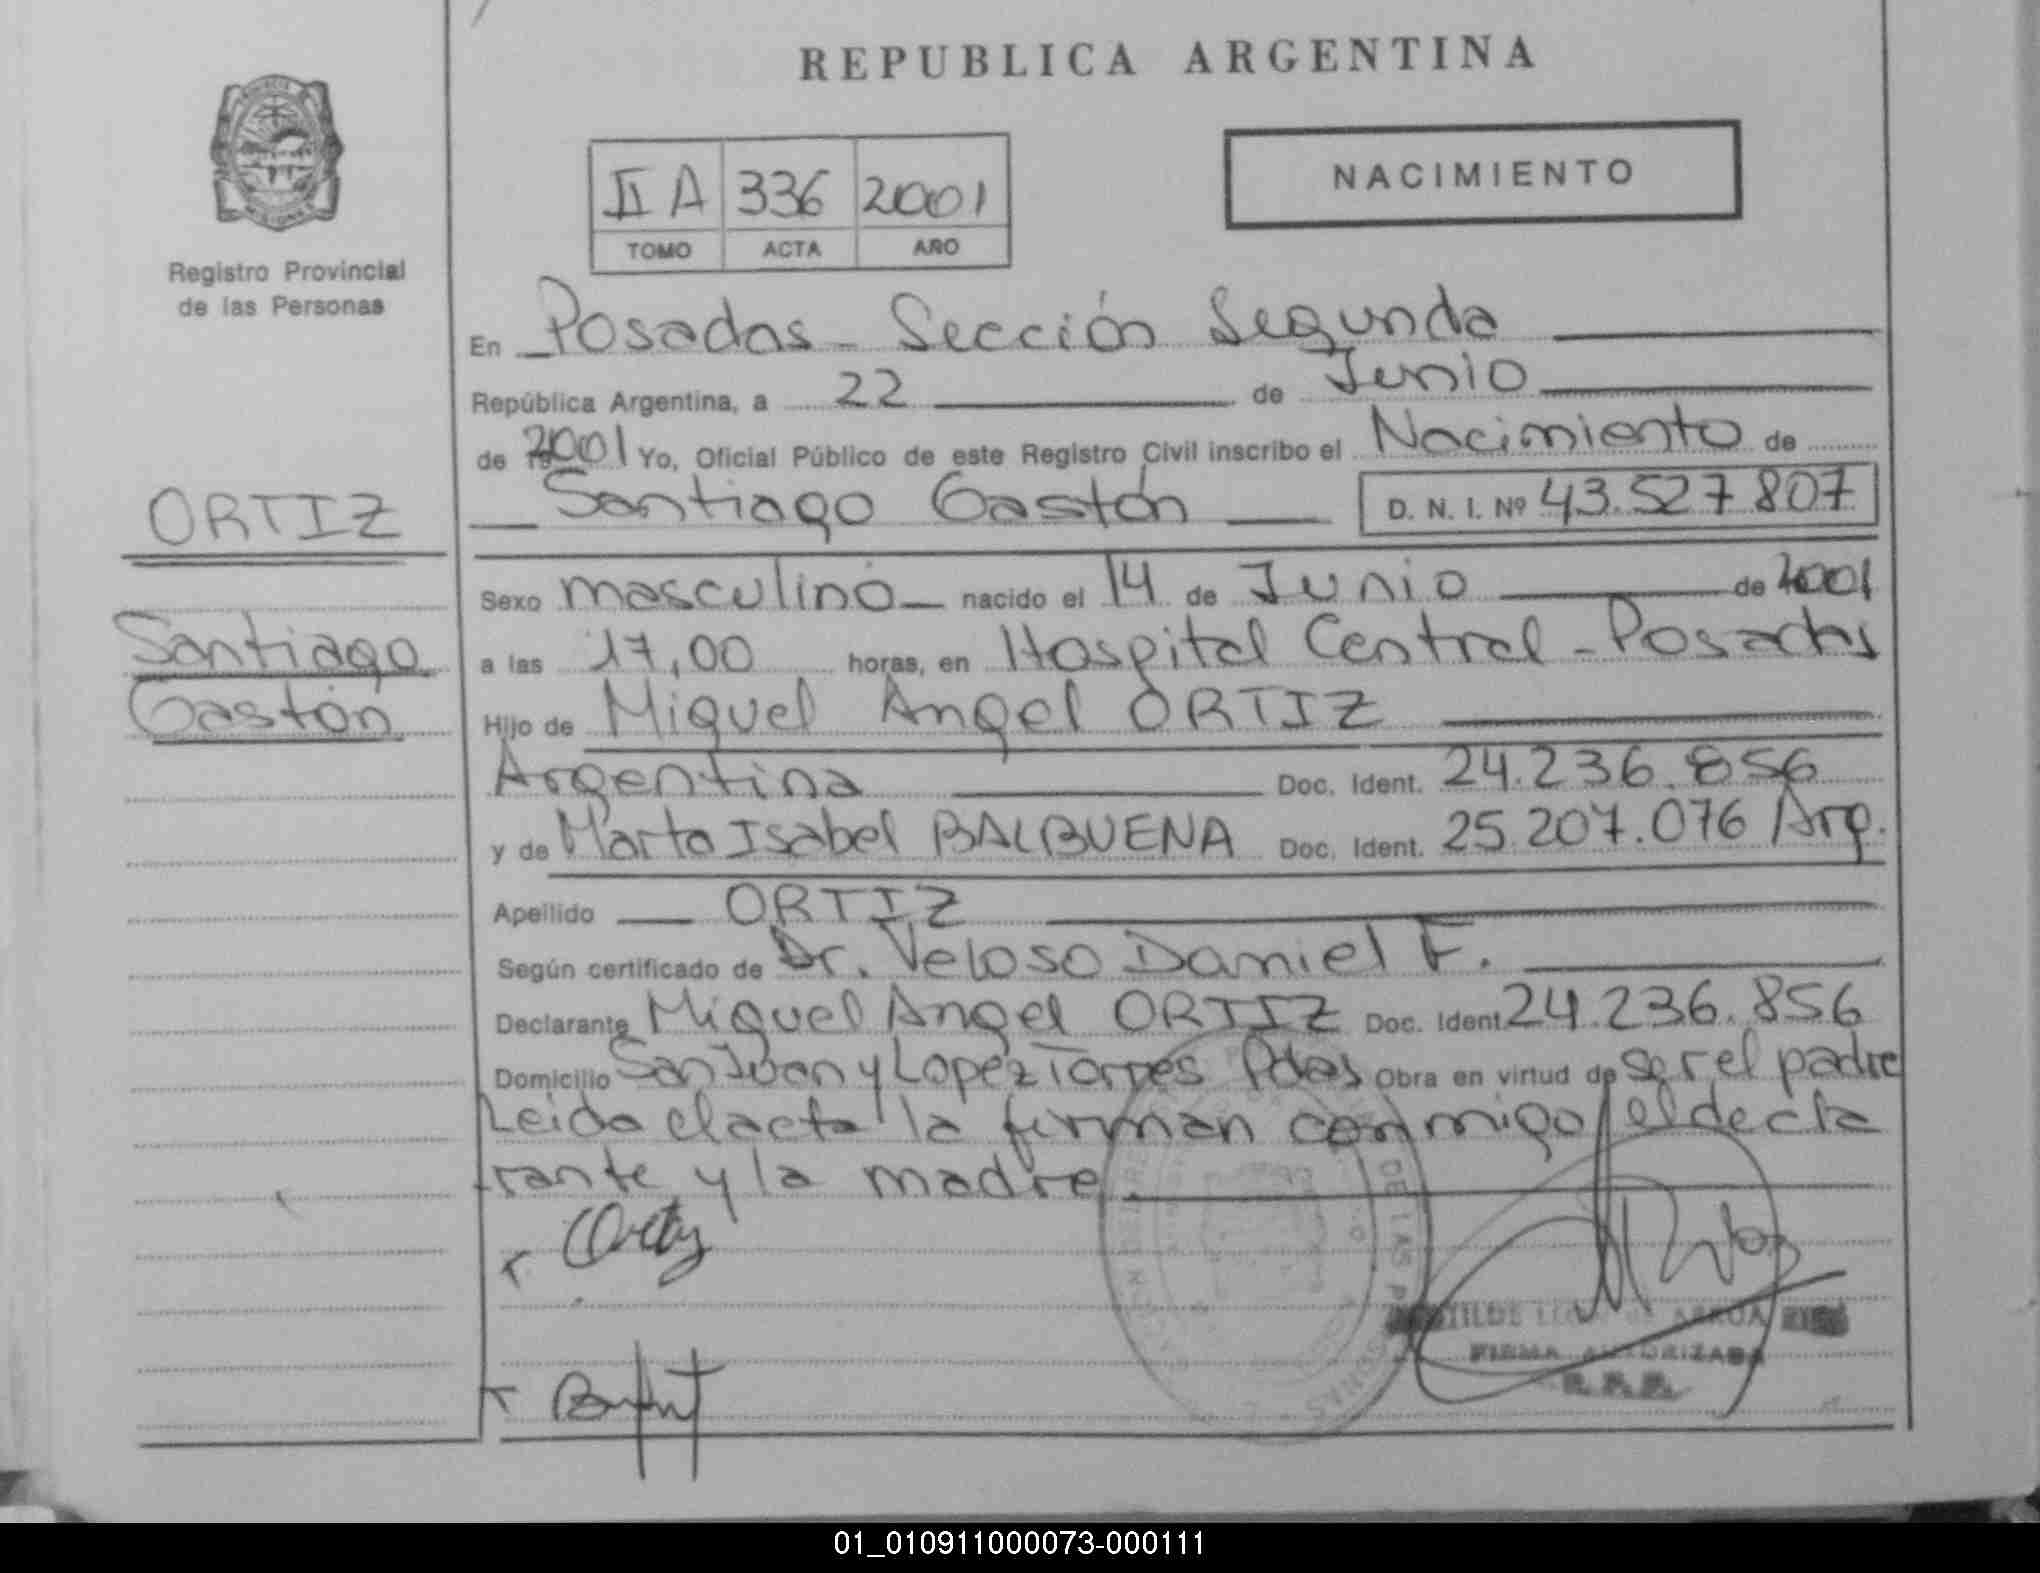 REPUBLICA ARGENTINA
Registro Provincial
de las Personas
II A 336 2001
TOMO ACTA AÑO
NACIMIENTO
En Posadas - Sección Segunda
República Argentina, a 22 de Junio
de 2001 Yo, Oficial Público de este Registro Civil inscribo el Nacimiento de
Santiago Gastón D. N. I. Nº 43.527.807
ORTIZ
Santiago
Gastón
Sexo masculino nacido el 14 de Junio de 2001
a las 17,00 horas, en Hospital Central - Posadas
Hijo de Miguel Angel ORTIZ
Argentina Doc. Ident. 24.236.856
y de Marta Isabel BALBUENA Doc. Ident. 25.207.076 Arg.
Apellido ORTIZ
Según certificado de Dr. Veloso Daniel F.
Declarante Miguel Angel ORTIZ Doc. Ident. 24.236.856
Domicilio San Juan y Lopez Torres Pdas Obra en virtud de ser el padre
Leida el acta la firman conmigo el decla
rante y la madre
Ortiz
FIRMA AUTORIZADA
R.P.P.
01_010911000073-000111